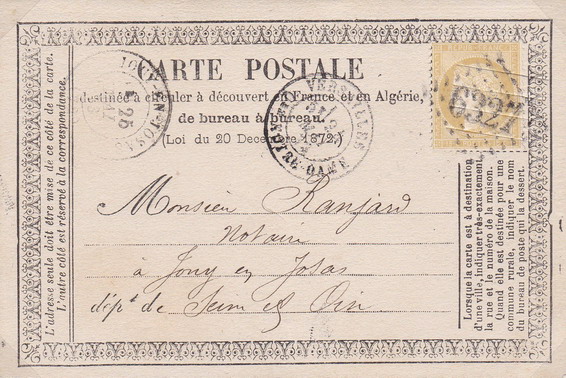 CARTE POSTALE
destinée à circuler à découvert en France et en Algérie,
de bureau à bureau.
(Loi du 20 Décembre 1872.)
L'adresse seule doit être mise de ce côté de la carte.
L'autre côté est réservé à la correspondance.
VERSAILLES
QUARTIER NOTRE-DAME
EN-JOSAS
25
6327
Monsieur Ranjard
Notaire
à Jouy en Josas
dépt de Seine et Oise
Lorsque la carte est à destination
d'une ville, indiquer très-exactement
la rue et le numéro de la maison.
Quand elle est destinée pour une
commune rurale, indiquer le nom
du bureau de poste qui la dessert.